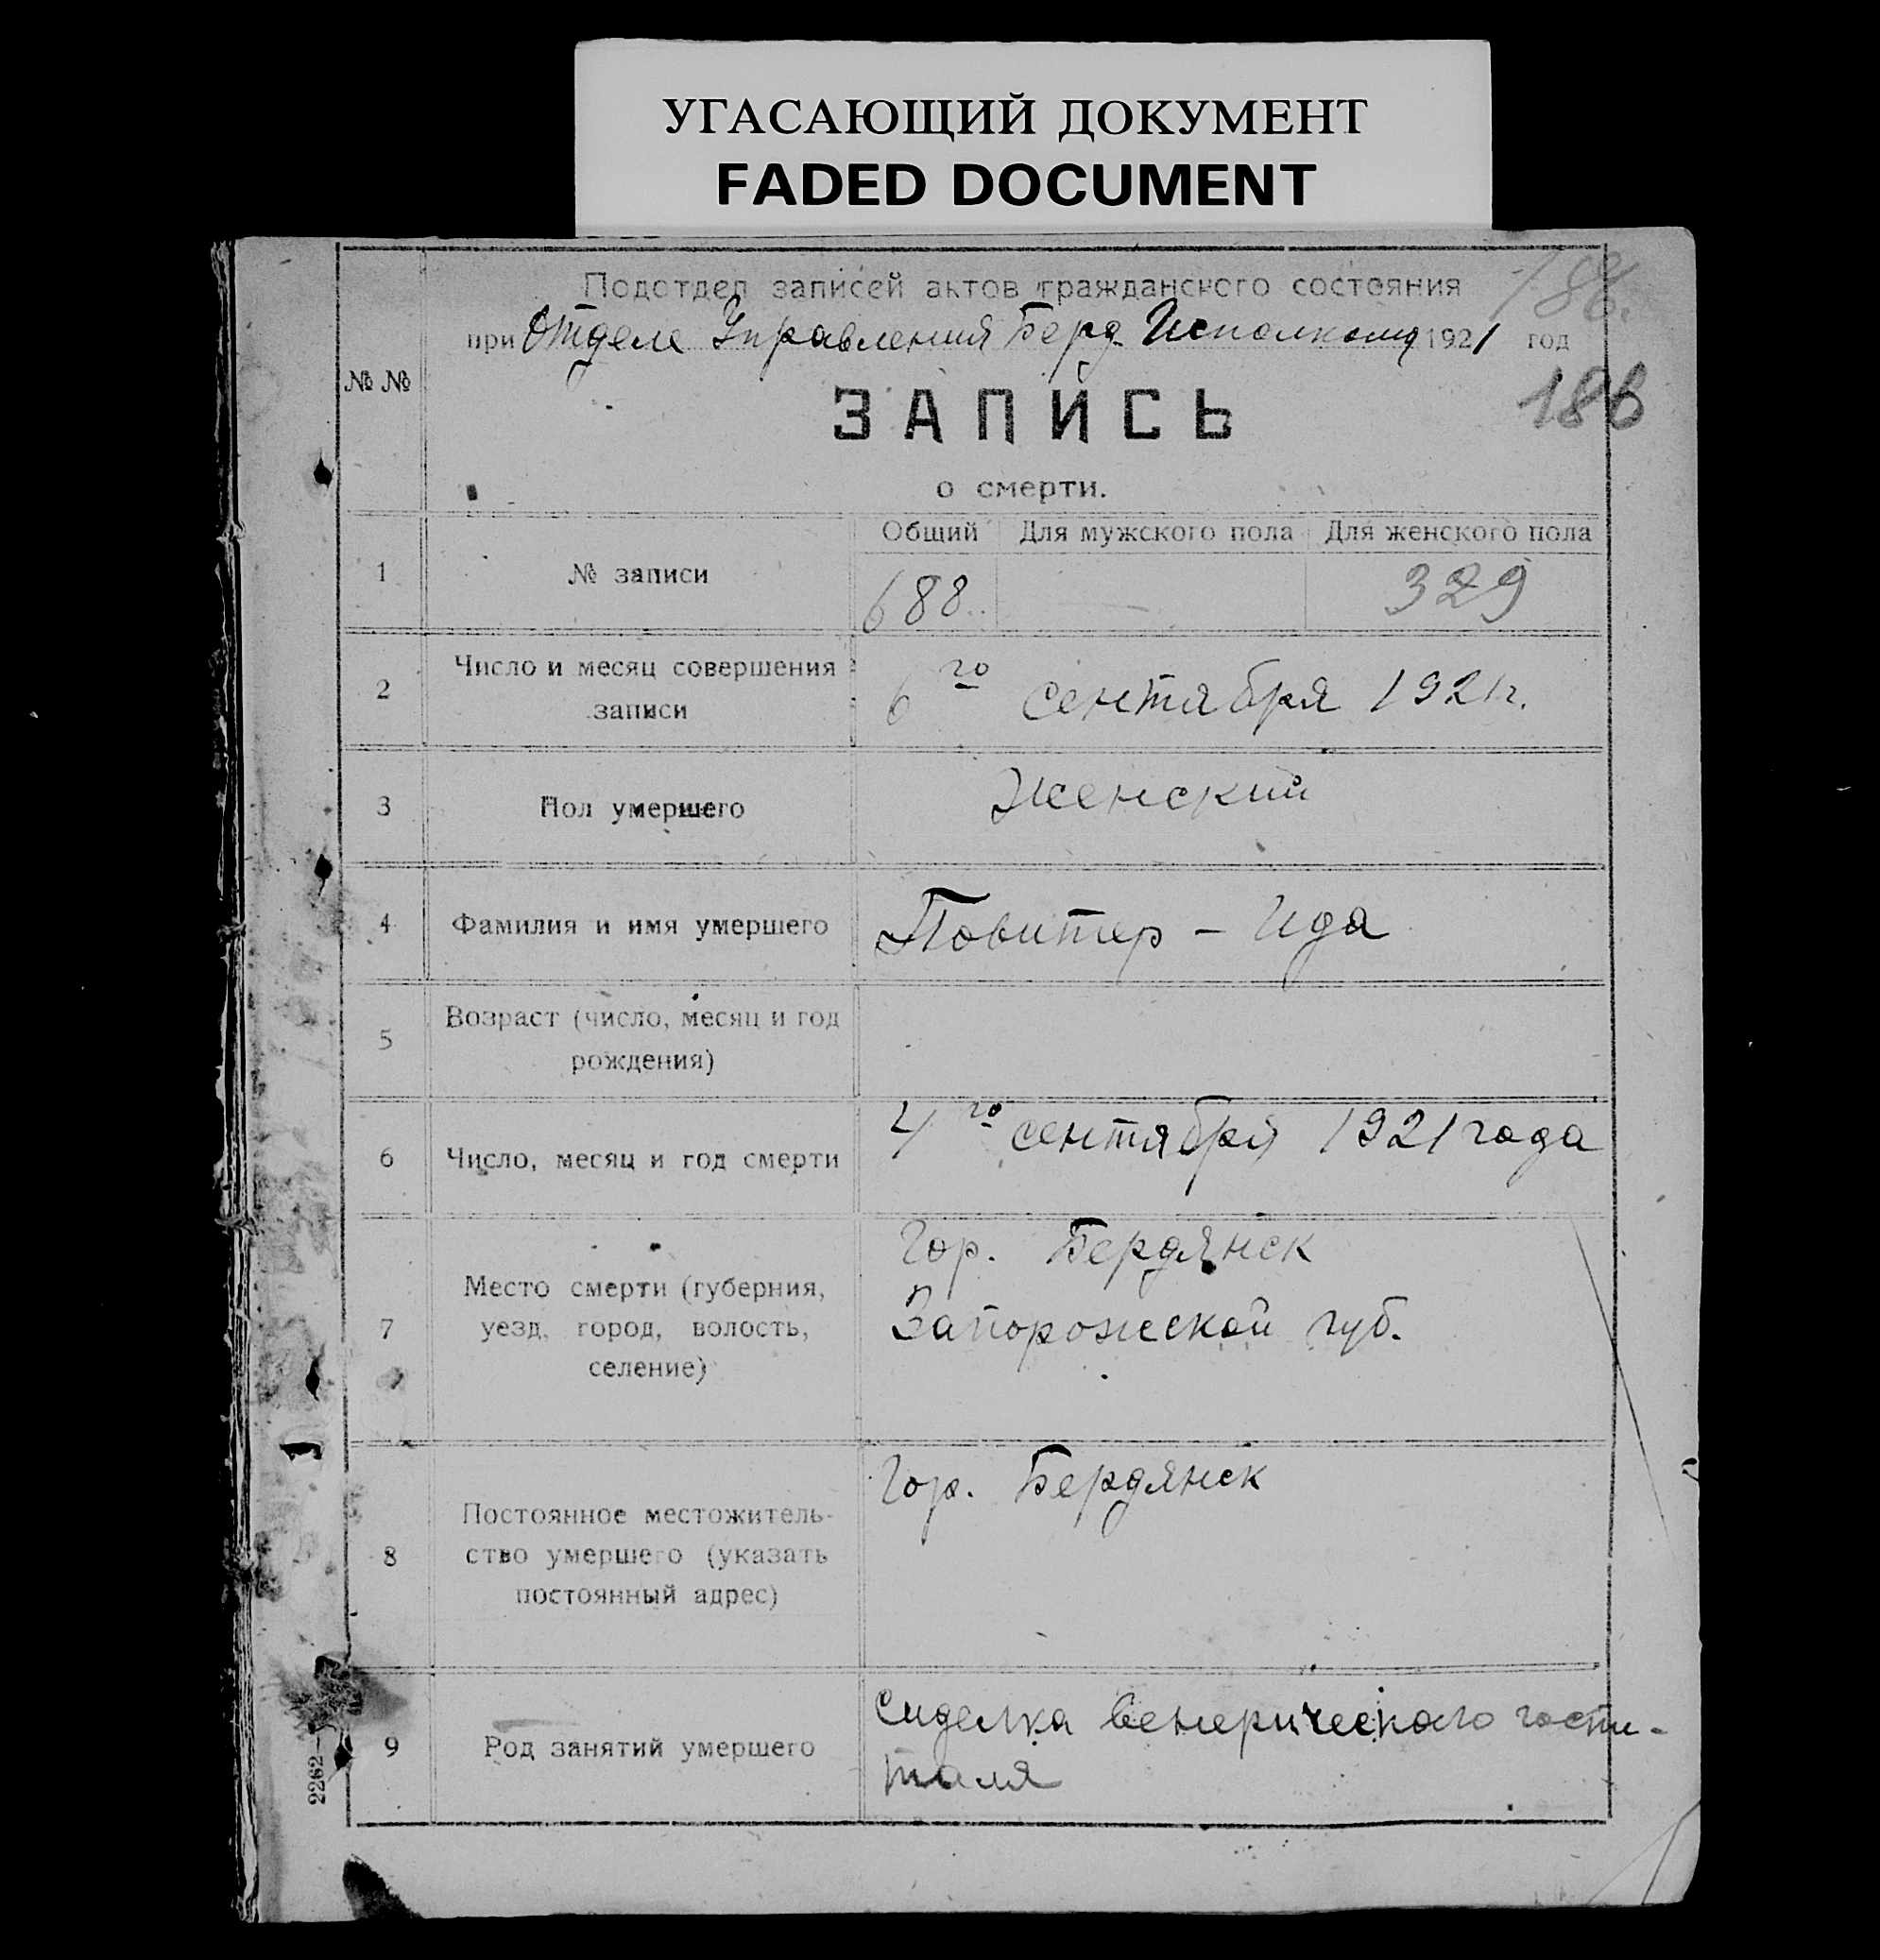 УГАСАЮЩИЙ ДОКУМЕНТ
FADED DOCUMENT
Подотдел записей актов гражданского состояния
при Отделе Управления Берд. Исполкома 1921 год
186
186
№ №
ЗАПИСЬ
о смерти.
Общий Для мужского пола Для женского пола
1 № записи 688 329
2 Число и месяц совершения
записи
6го сентября 1921г.
3 Пол умершего Женский
4 Фамилия и имя умершего Повитер – Ида
5 Возраст (число, месяц и год
рождения)
6 Число, месяц и год смерти 4го сентября 1921 года
7 Место смерти (губерния,
уезд, город, волость,
селение)
Гор. Бердянск
Запорожской губ.
8 Постоянное местожитель-
ство умершего (указать
постоянный адрес)
Гор. Бердянск
9 Род занятий умершего
Сиделка венерического госпи-
таля
2262—